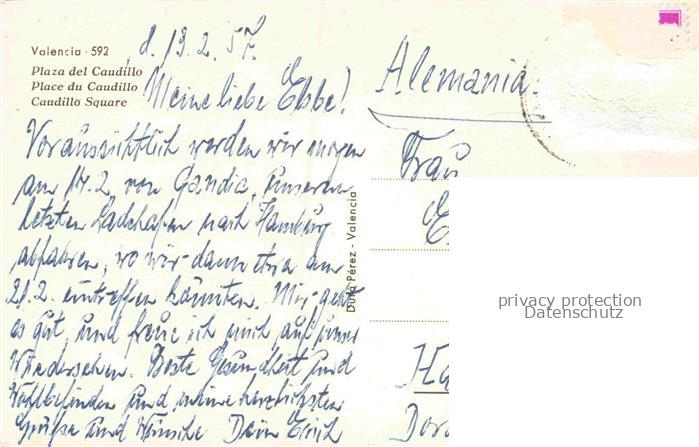 Valencia - 592
Plaza del Caudillo
Place du Caudillo
Caudillo Square
d. 13.2.57.
Meine liebe Ebbe!
Voraussichtlich werden wir morgen
am 14.2 von Gandia, unserem
letzten Ladehafen nach Hamburg
abfahren, wo wir dann etwa am
21.2. eintreffen könnten. Mir geht
es gut, und freue ich mich auf unser
Wiedersehen. Beste Gesundheit und
Wohlbefinden und meine herzlichsten
Grüße und Wünsche Dein Erich
Durá Pérez - Valencia
Alemania.
Frau
E
Ha
Dor
privacy protection
Datenschutz